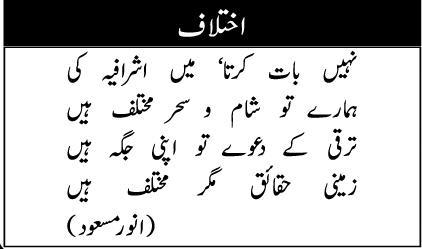 اختلاف
نہیں بات کرتا، میں اشرافیہ کی
ہمارے تو شام و سحر مختلف ہیں
ترقی کے دعوے تو اپنی جگہ ہیں
زمینی حقائق مگر مختلف ہیں
(انور مسعود)